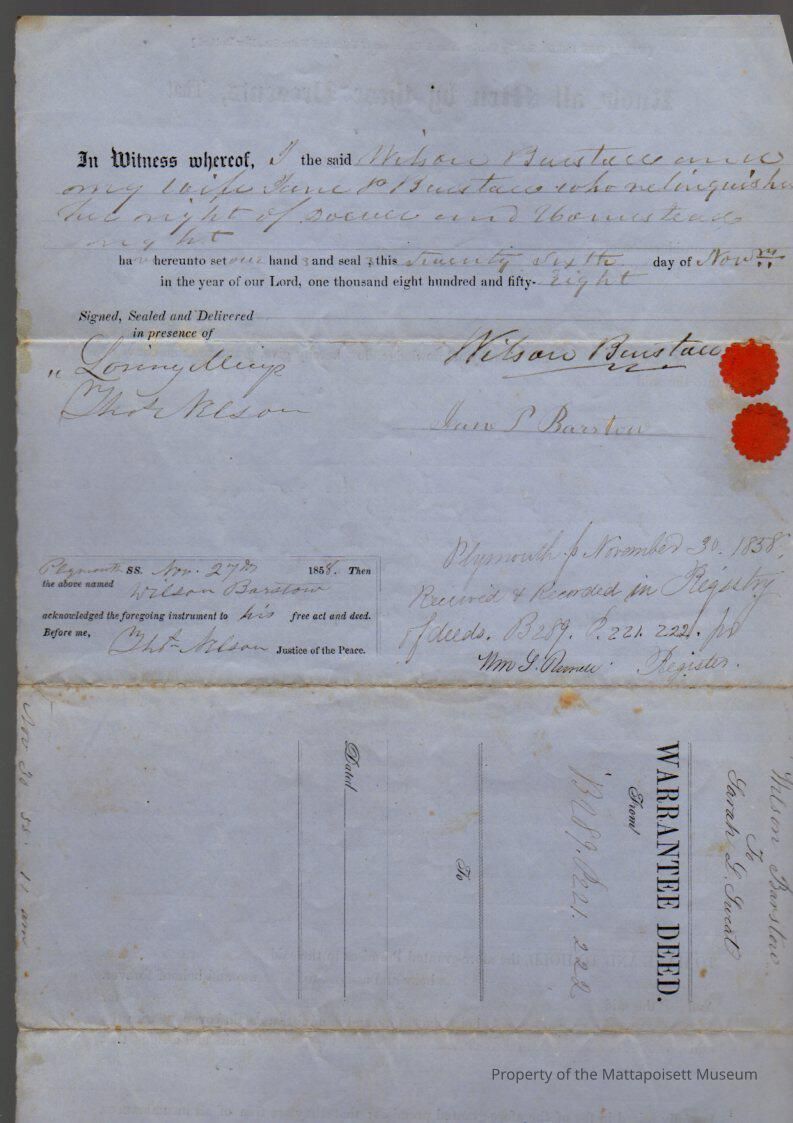 In Witness whereof, I the said Wilson Barstow and
my wife Jane P Barstow who relinquishes
her right of Dower and Homestead
right
ha hereunto set our hand s and seal s this twenty sixth day of Nov
in the year of our Lord, one thousand eight hundred and fifty-eight
Signed, Sealed and Delivered
in presence of
Loring Meigs
Thos. Nelson
Wilson Barstow
Jane P Barstow
Plymouth SS. Nov. 27th 1858. Then
the above named Wilson Barstow
acknowledged the foregoing instrument to his free act and deed.
Before me, Thos. Nelson Justice of the Peace.
Plymouth ss November 30. 1858.
Received & Recorded in Registry
of deeds. B289. P. 221. 222. pr
Wm S. Register.
Nov 30 58. 11 am
Wilson Barstow
To
Sarah G.
WARRANTEE DEED.
From
B289. P221. 222
To
Dated
Property of the Mattapoisett Museum